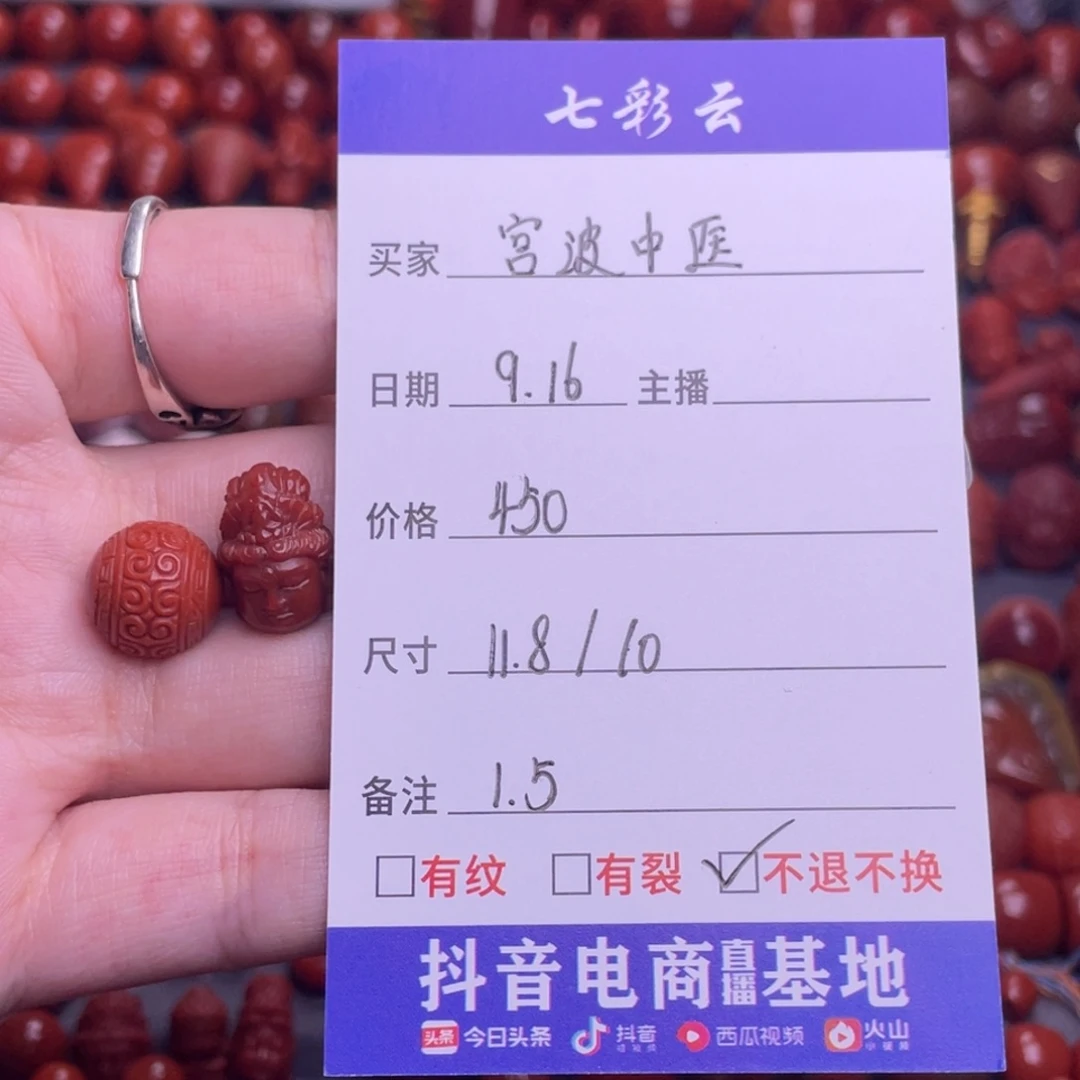 七彩云
买家 宫波中医
日期 9.16 主播
价格 450
尺寸 11.8 / 10
备注 1.5
有纹 有裂 不退不换
抖音电商直播基地
头条 今日头条 抖音 西瓜视频 火山